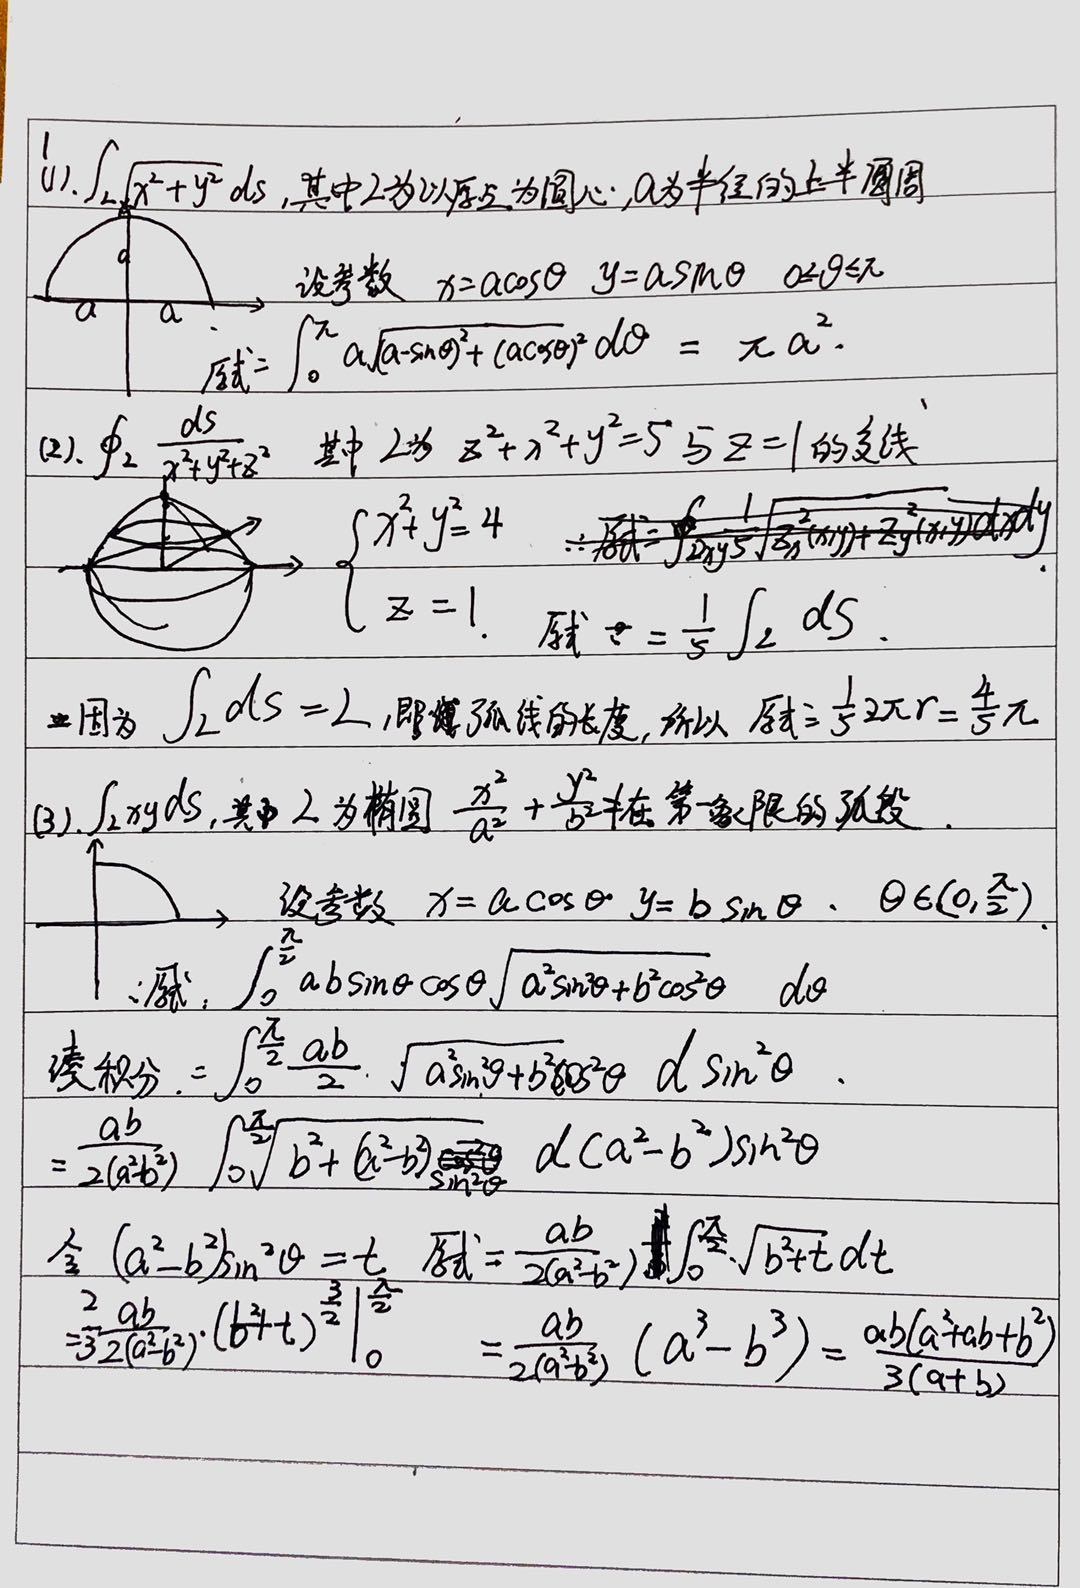 1
(1). ∫_L √(x²+y²) ds, 其中L为以原点为圆心, a为半径的上半圆周
a
a a
设参数 x=acosθ y=asinθ 0≤θ≤π
原式=∫_0^π a√((a-sinθ)²+(acosθ)²) dθ = πa².
(2). ∮_L ds/(x²+y²+z²) 其中L为 z²+x²+y²=5与z=1的交线
{x²+y²=4
z=1. 原式 = 1/5 ∫_L ds.
因为 ∫_L ds=L, 即弧线的长度, 所以 原式=1/5 2πr=4/5 π
(3). ∫_L xyds, 其中L为椭圆 x²/a² + y²/b² 在第一象限的弧段.
设参数 x=acosθ y=bsinθ. θ∈(0, π/2).
∴原式. ∫_0^(π/2) ab sinθ cosθ √(a²sin²θ+b²cos²θ) dθ
凑积分.=∫_0^(π/2) ab/2 · √(a²sin²θ+b²cos²θ) d sin²θ.
= ab/(2(a²-b²)) ∫_0^(π/2) √(b²+(a²-b²)sin²θ) d(a²-b²)sin²θ
令 (a²-b²)sin²θ=t 原式= ab/(2(a²-b²)) ∫_0^(π/2) √(b²+t) dt
= 2/3 ab/(2(a²-b²)) · (b²+t)^(3/2) |_0^(π/2) = ab/(2(a²-b²)) (a³-b³) = ab(a²+ab+b²)/(3(a+b))